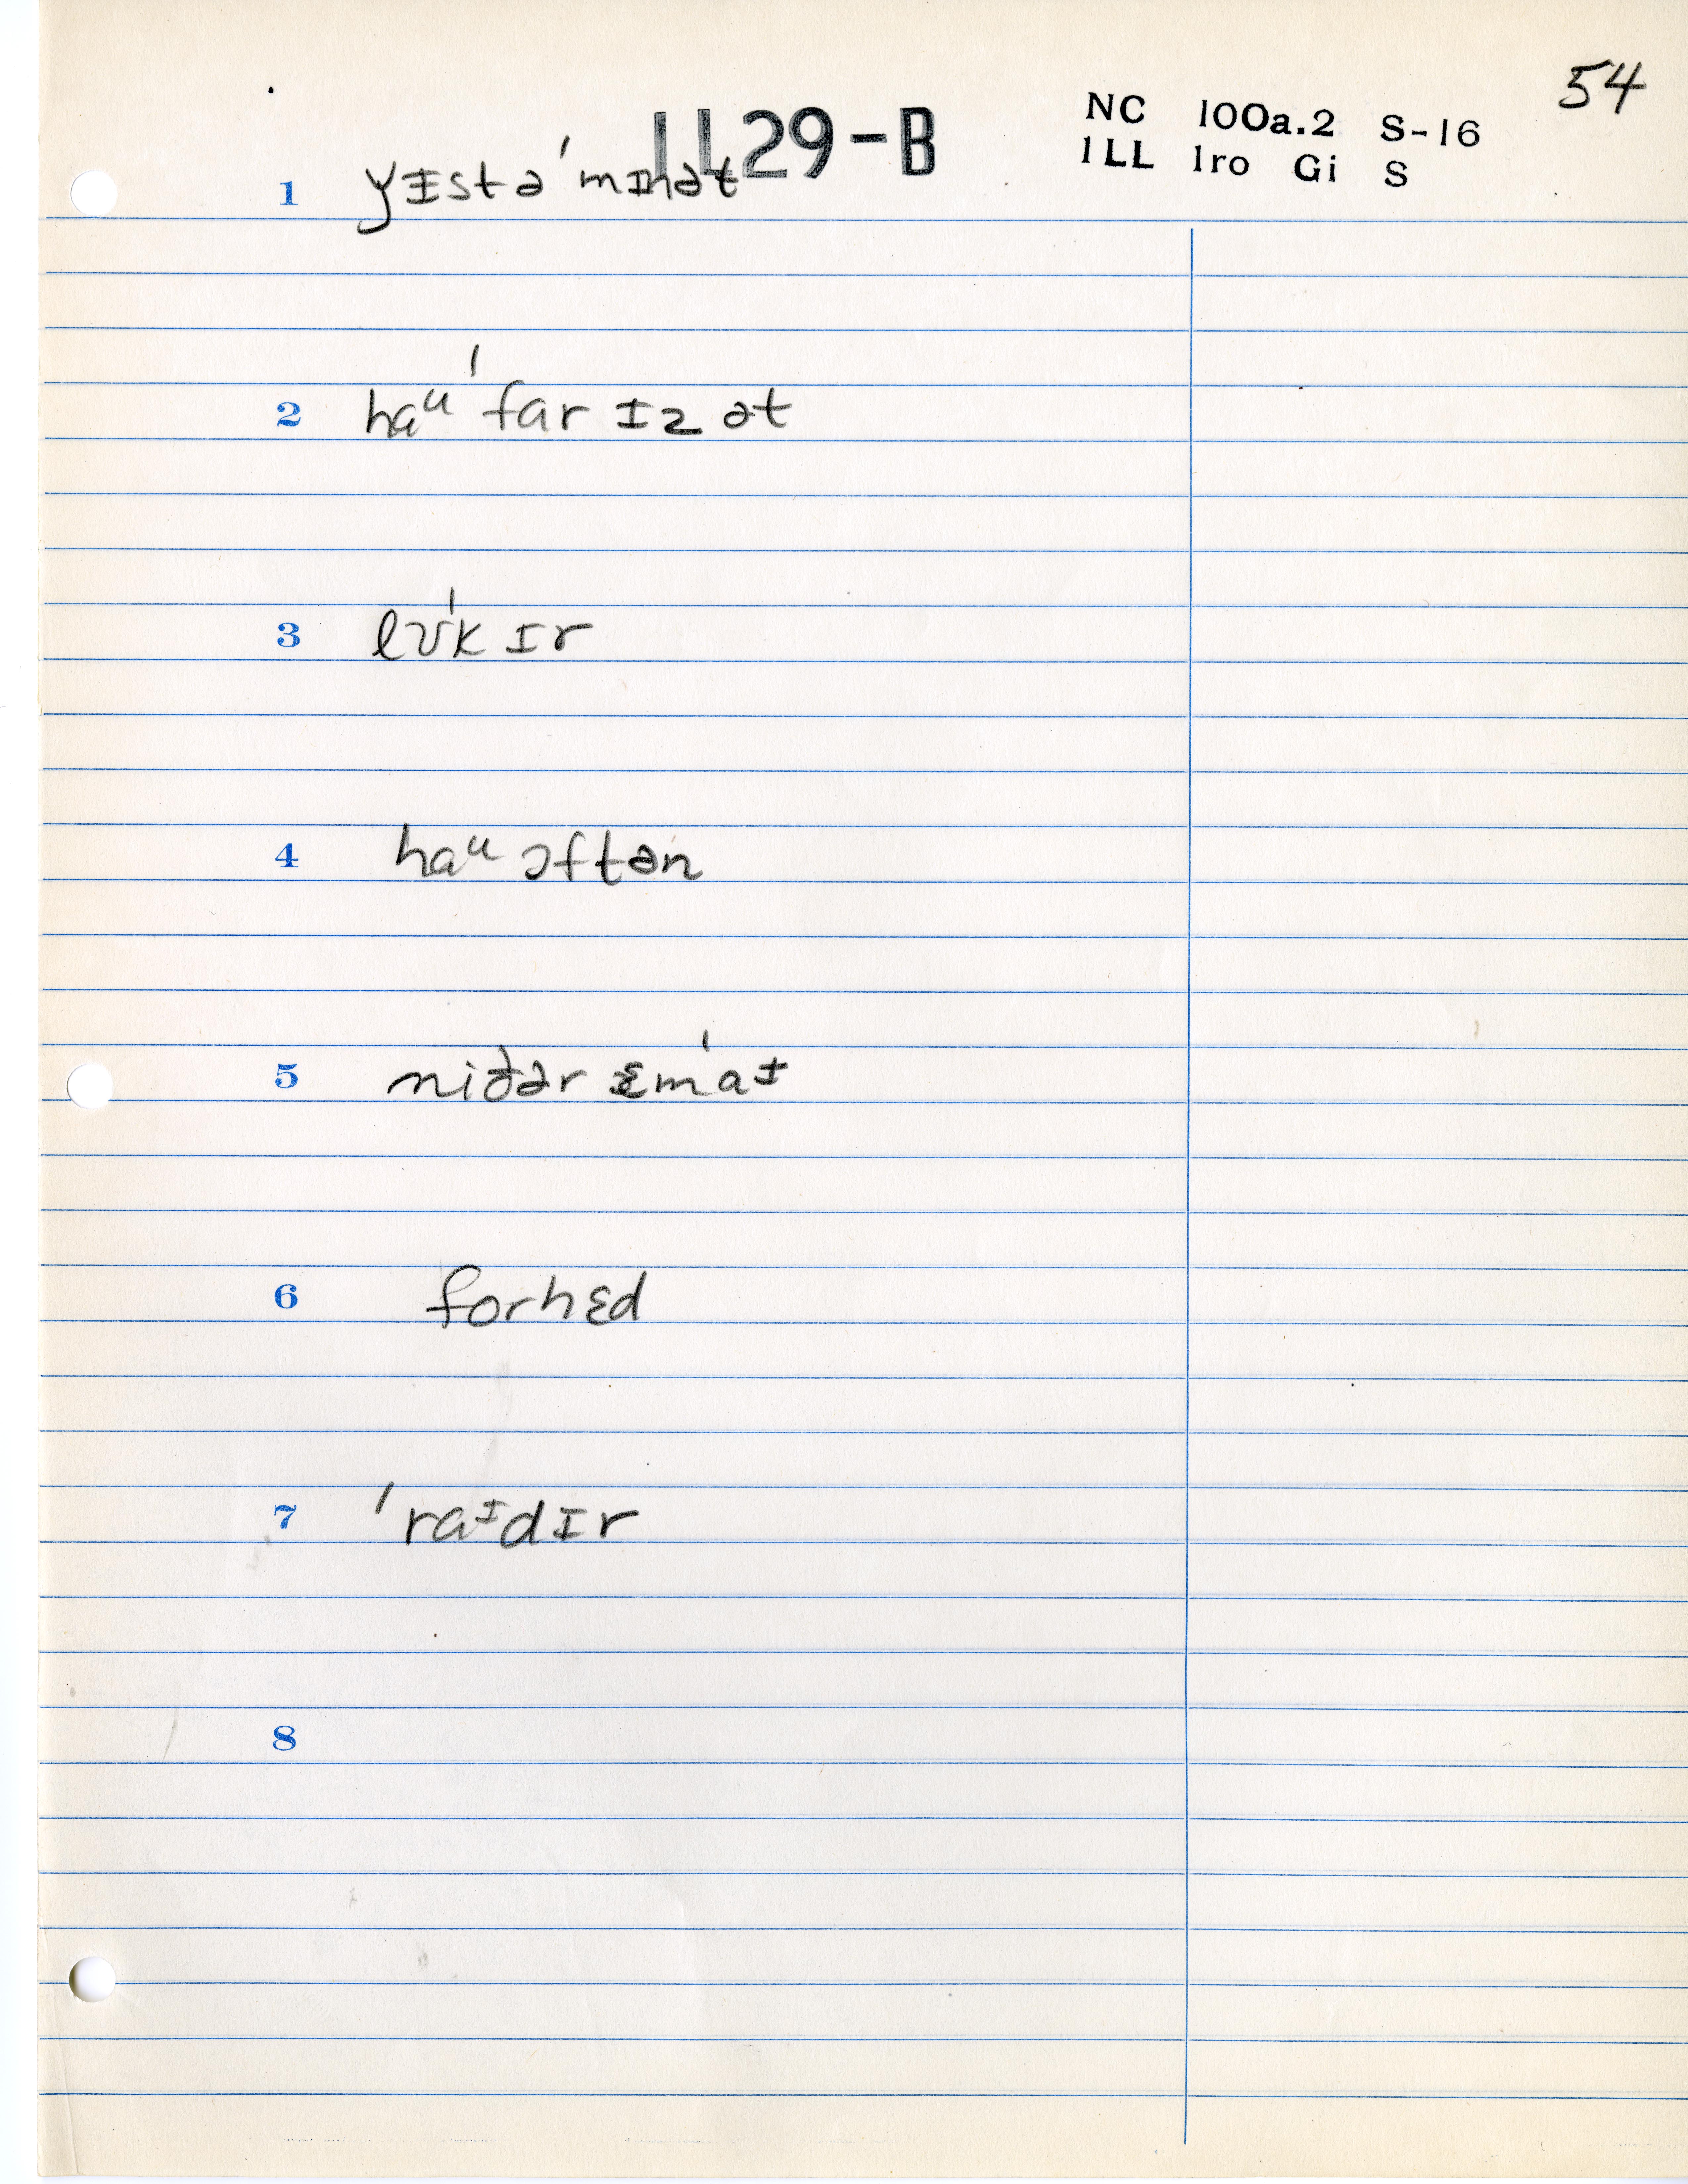 54
1LL29-B
NC 100a.2 S-16
1LL 1ro Gi S
1 yɪstə'mɪnət
2 haᵘ 'far ɪz ət
3 lʊ'k ɪr
4 haᵘ ɔftən
5 niðər ɛm'aᶦ
6 forhɛd
7 'raᶦdɪr
8